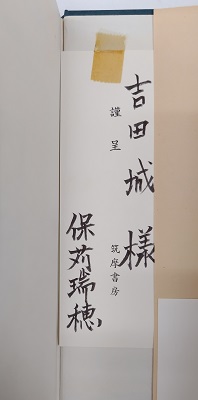 吉田城様
謹呈
筑摩書房
保苅瑞穂